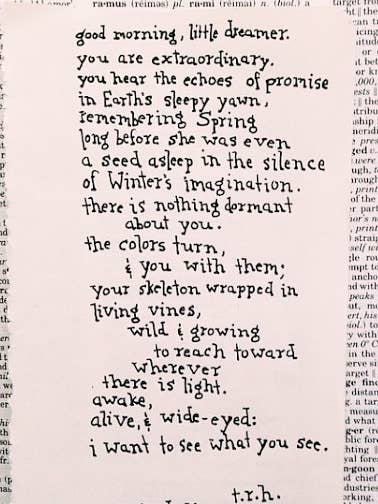 ra·mus (réimas) pl. ra·mi (réimai) n. (biol.) a
good morning, little dreamer.
you are extraordinary.
you hear the echoes of promise
in Earth's sleepy yawn,
remembering Spring
long before she was even
a seed asleep in the silence
of Winter's imagination.
there is nothing dormant
about you.
the colors turn,
& you with them;
your skeleton wrapped in
living vines,
wild & growing
to reach toward
wherever
there is light.
awake,
alive, & wide-eyed:
i want to see what you see.
t.r.h.